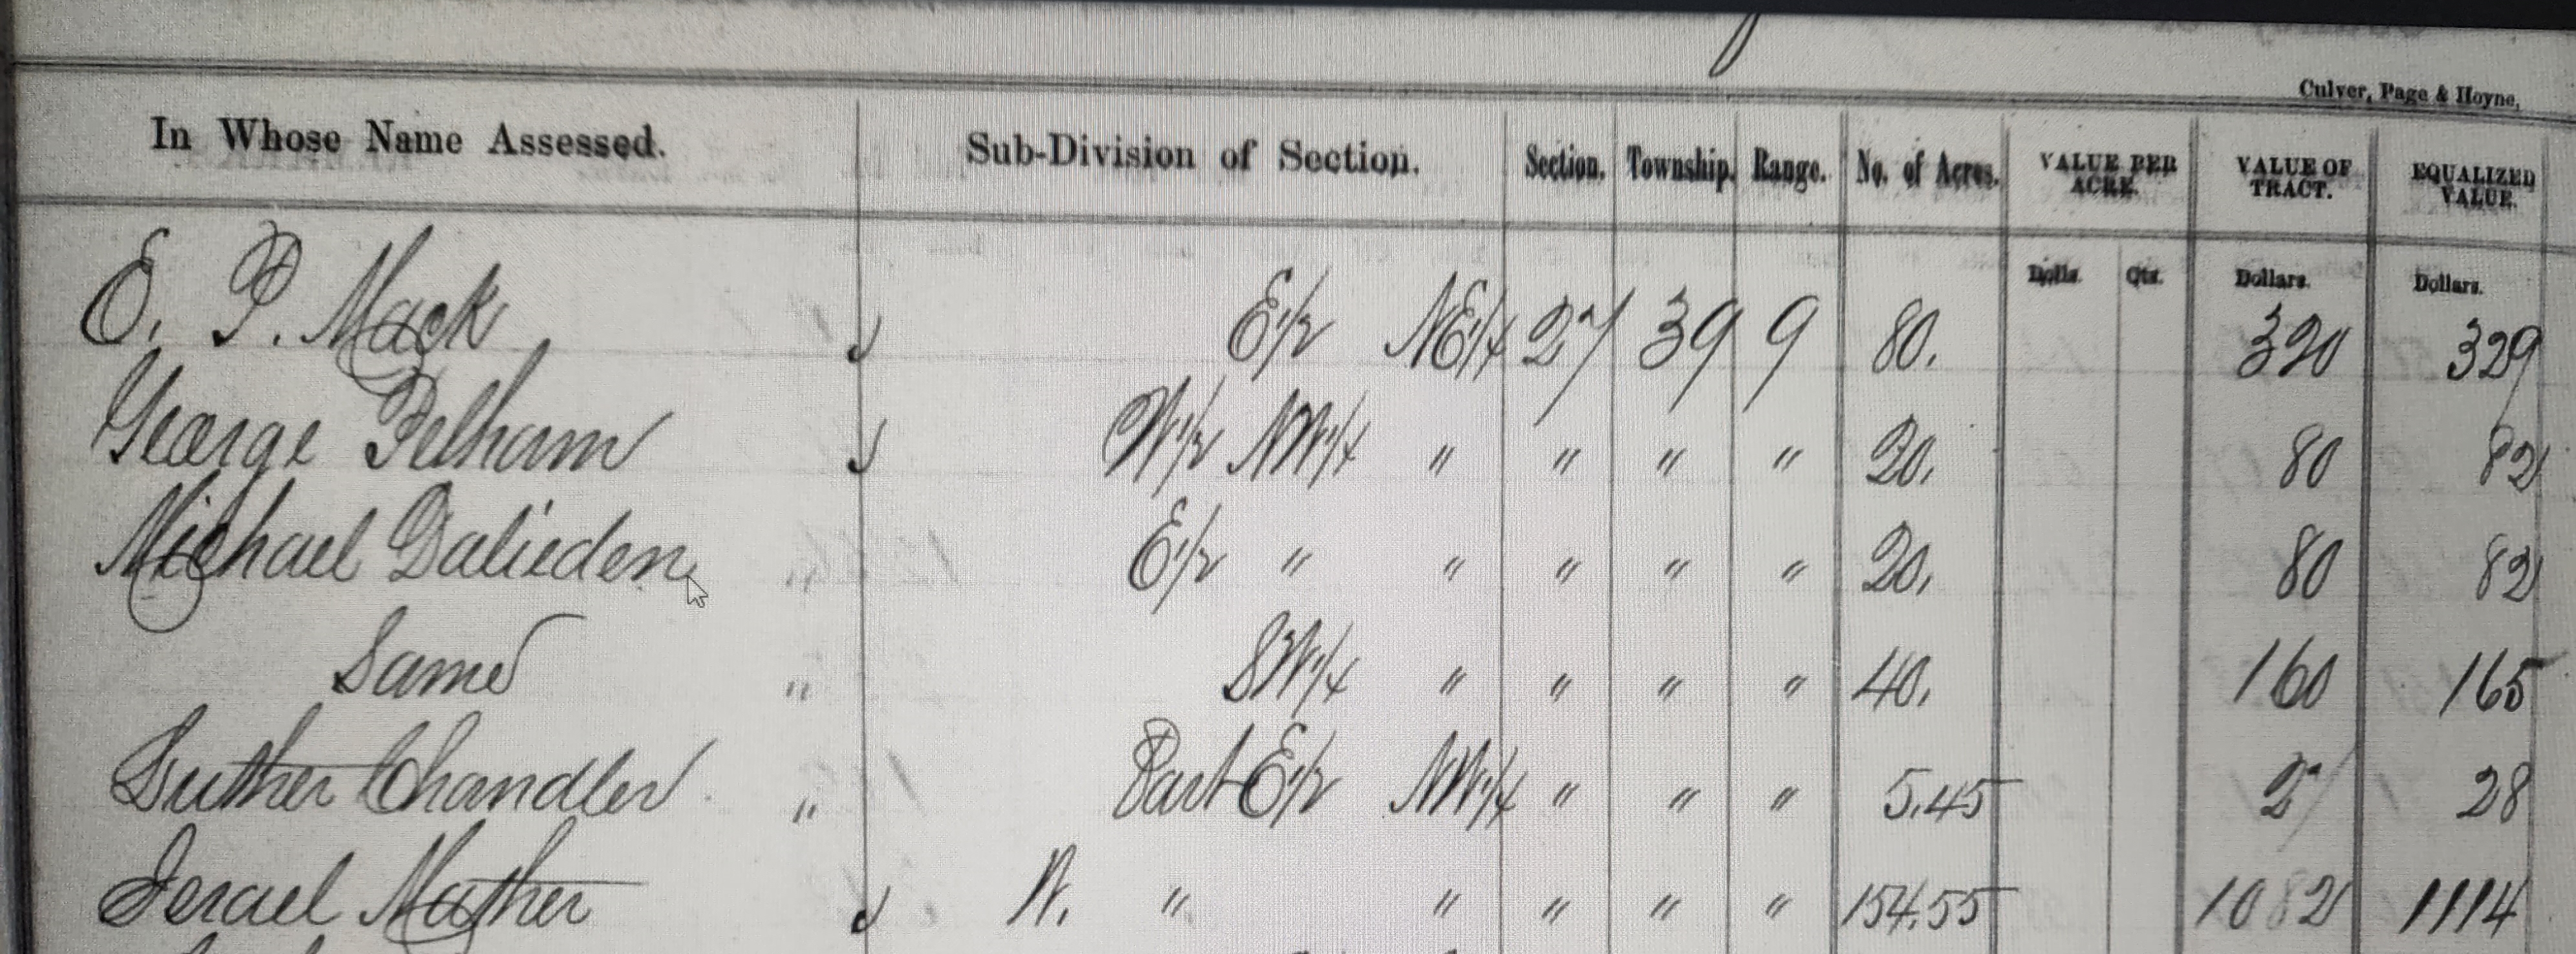 Culver, Page & Hoyne,
In Whose Name Assessed. Sub-Division of Section. Section. Township. Range. No. of Acres. VALUE PER ACRE. VALUE OF TRACT. EQUALIZED VALUE.
Dolls. Cts. Dollars. Dollars.
E. P. Mack E1/2 NE1/4 27 39 9 80. 320 329
George Pelham W1/2 NW1/4 " " " " 20. 80 82
Michael Dalieden E1/2 " " " " " 20. 80 82
Same " SW1/4 " " " " 40. 160 165
Luther Chandler " Part E1/2 NW1/4 " " " 5.45 27 28
Israel Mather W. " " " " " 154.55 1082 1114